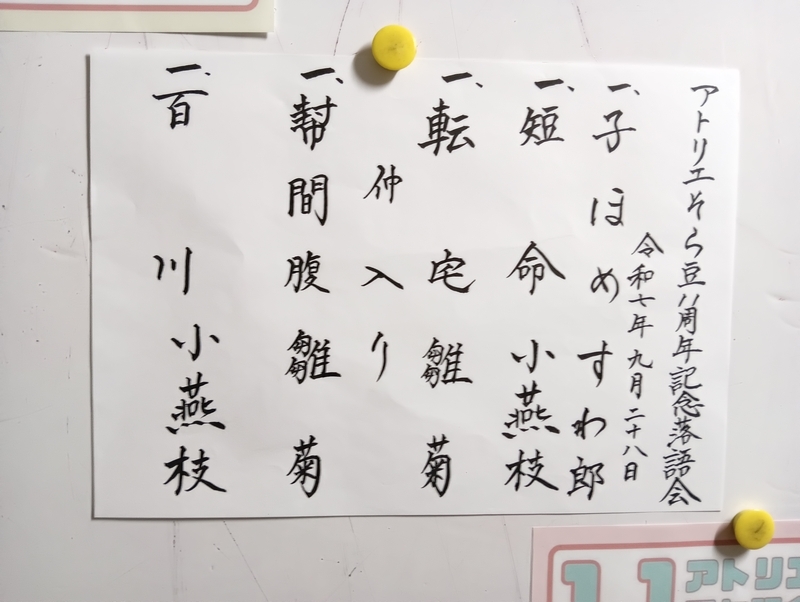 アトリエそら豆八周年記念落語会
令和七年九月二十八日
一、子ほめ すわ郎
一、短命 小燕枝
一、転宅 雛菊
仲入り
一、幇間腹 雛菊
一、百川 小燕枝
11
アトリエ